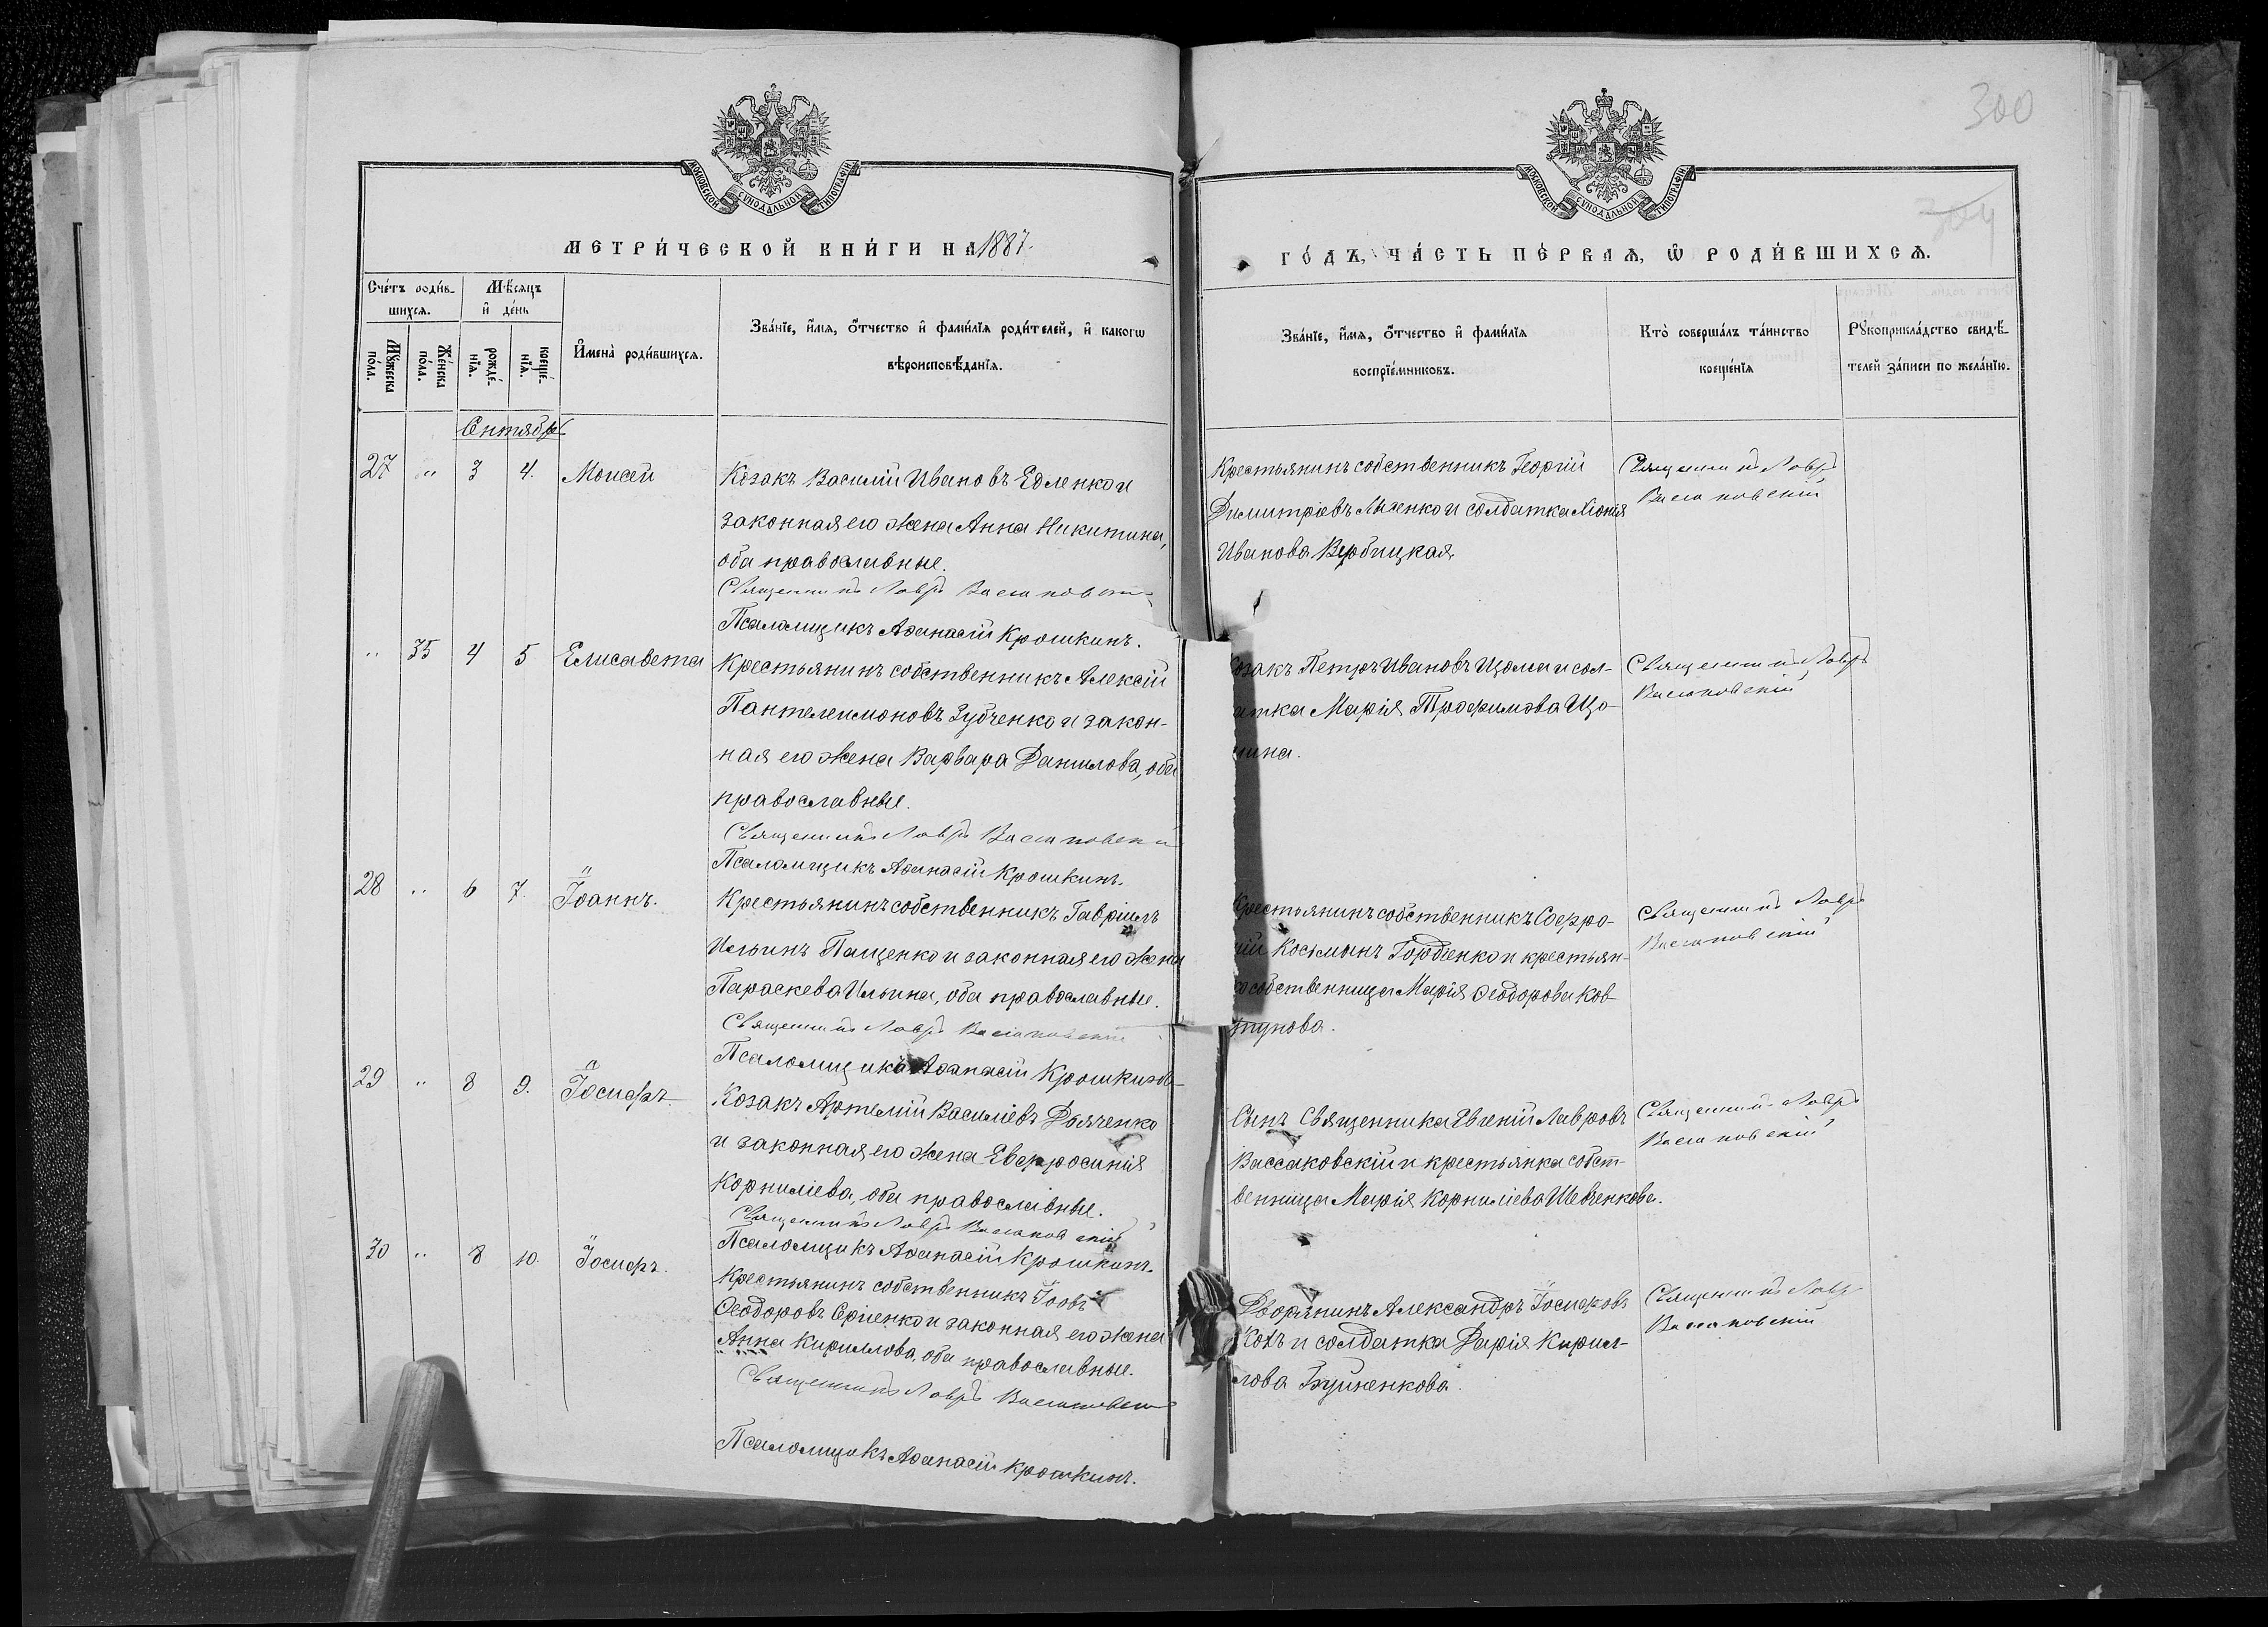 300
304
МОСКОВСКОЙ СѴНОДАЛЬНОЙ ТИПОГРАФІИ
МОСКОВСКОЙ СѴНОДАЛЬНОЙ ТИПОГРАФІИ
МЕТРИ́ЧЕСКОЙ КНИ́ГИ НА 1887.
ГО́ДЪ, ЧА́СТЬ ПЕ́РВАѦ, Ѡ РОДИ́ВШИХСѦ.
Сче́тъ роди́в-
шихсѧ.
Мѣ́сяцъ
и де́нь
Му́жеска
по́ла.
Же́нска
по́ла.
рожде́-
нїѧ.
креще́-
нїѧ.
Имена̀ роди́вшихсѧ.
Зва́нїе, и́мѧ, о́тчество и фами́лїѧ роди́телей, и какогѡ
вѣроисповѣ́данїѧ.
Зва́нїе, и́мѧ, о́тчество и фами́лїѧ
воспрїе́мниковъ.
Кто̀ соверша́лъ та́инство
креще́нїѧ
Рꙋкоприкла́дство свидѣ́-
телей за́писи по жела́нїю.
Сентябрь
27 " 3 4. Моисей
Козакъ Василій Ивановъ Едленко и
законная его жена Анна Никитина,
оба православные.
Священникъ Лавръ Вассаковскій
Псаломщикъ Аѳанасій Крошкинъ.
Крестьянинъ собственникъ Георгій
Димитріевъ Лысенко и солдатка
Иванова Вербицкая
Священникъ Лавръ
Вассаковскій
" 35 4 5 Елисавета
Крестьянинъ собственникъ Алексій
Пантелеимоновъ Зубченко и закон-
ная его жена Варвара Данилова, оба
православные.
Священникъ Лавръ Вассаковскій
Псаломщикъ Аѳанасій Крошкинъ.
озакъ Петръ Ивановъ Щома и сол-
атка Марія Трофимова Що-
мина.
Священникъ Лавръ
Вассаковскій
28 " 6 7. Іоаннъ.
Крестьянинъ собственникъ Гавріилъ
Ильинъ Пащенко и законная его жена
Параскева Ильина, оба православные.
Священникъ Лавръ Вассаковскій
Псаломщикъ Аѳанасій Крошкинъ
Крестьянинъ собственникъ Софро-
ній Косьминъ Гордіенко и крестьян-
ка собственница Марія Ѳеодорова Ков-
тунова.
Священникъ Лавръ
Вассаковскій
29 " 8 9. Іосифъ.
Козакъ Артемій Василіевъ Дьяченко
и законная его жена Евфросинія
Корниліева, оба православные.
Священникъ Лавръ Вассаковскій
Псаломщикъ Аѳанасій Крошкинъ.
Сынъ Священника Евгеній Лавровъ
Вассаковскій и крестьянка собст-
венница Марія Корниліева Шевченкова.
Священникъ Лавръ
Вассаковскій
30 " 8 10. Іосифъ.
Крестьянинъ собственникъ Іовъ
Ѳеодоровъ Сріенко и законная его жена
Анна Кириллова, оба православные.
Священникъ Лавръ Вассаковскій
Псаломщикъ Аѳанасій Крошкинъ.
Дворянинъ Александръ Іосифовъ
Кохъ и солдатка Дарія Кирил-
лова Буйненкова.
Священникъ Лавръ
Вассаковскій